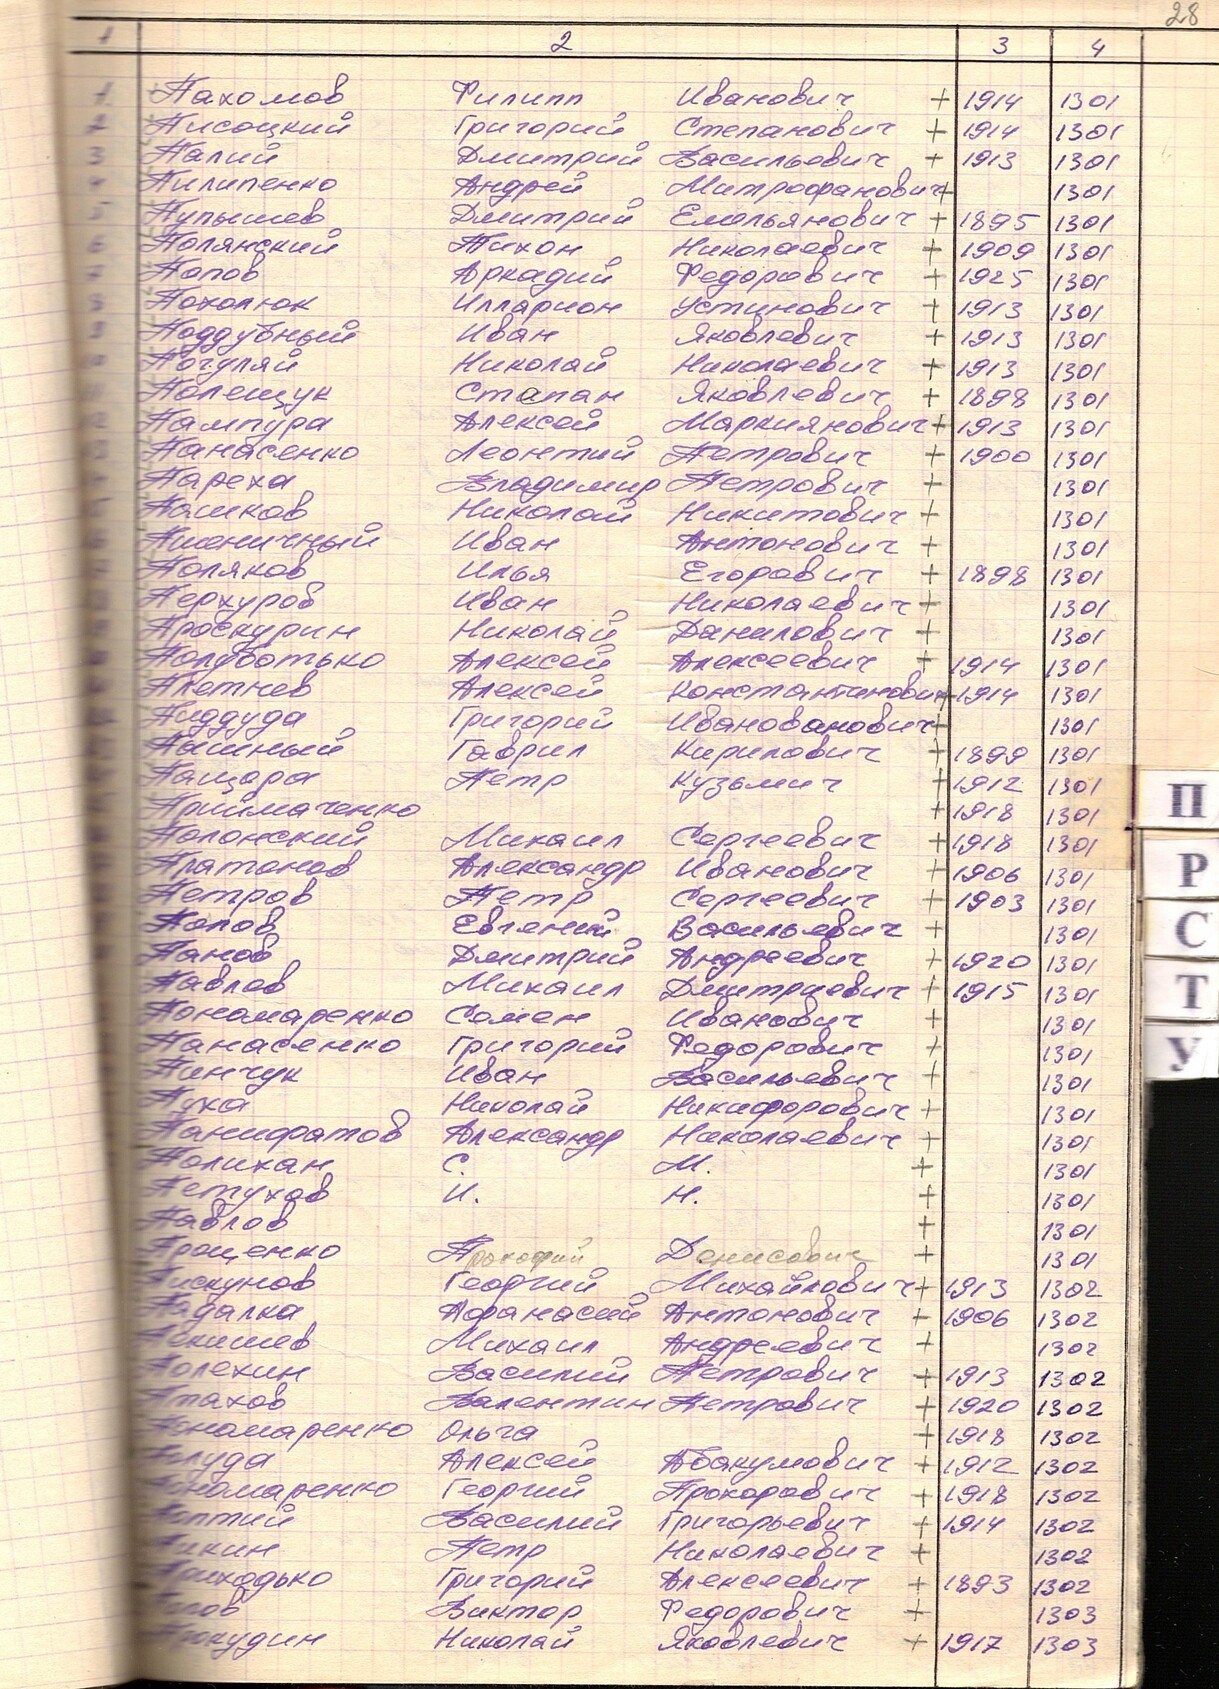 28
1 2 3 4
1 Пахомов Филипп Иванович + 1914 1301
2 Писоцкий Григорий Степанович + 1914 1301
3 Палий Дмитрий Васильевич + 1913 1301
4 Пилипенко Андрей Митрофанович + 1301
5 Пупышев Дмитрий Емельянович + 1895 1301
6 Полянский Тихон Николаевич + 1909 1301
7 Попов Аркадий Федорович + 1925 1301
8 Похолюк Илларион Устинович + 1913 1301
9 Поддубный Иван Яковлевич + 1913 1301
10 Погуляй Николай Николаевич + 1913 1301
Полещук Стапан Яковлевич + 1898 1301
Пампура Алексей Маркиянович + 1913 1301
Панасенко Леонтий Петрович + 1900 1301
Пареха Владимир Петрович + 1301
Пашков Николай Никитович + 1301
Пшеничный Иван Антонович + 1301
Поляков Илья Егорович + 1898 1301
Перхуров Иван Николаевич + 1301
Проскурин Николай Данилович + 1301
Полуботько Алексей Алексеевич + 1914 1301
Плетнев Алексей Константинович + 1914 1301
Пиддуда Григорий Иванованович + 1301
Пашный Гаврил Кирилович + 1899 1301
Пащера Петр Кузьмич + 1912 1301
Приймаченко + 1918 1301
Полонский Михаил Сергеевич + 1918 1301
Платонов Александр Иванович + 1906 1301
Петров Петр Сергеевич + 1903 1301
Попов Евгений Васильевич + 1301
Панов Дмитрий Андреевич + 1920 1301
Павлов Михаил Дмитриевич + 1915 1301
Пономаренко Семен Иванович + 1301
Панасенко Григорий Федорович + 1301
Пинчук Иван Васильевич + 1301
Пуха Николай Никифорович + 1301
Панифатов Александр Николаевич + 1301
Полихан С. М. + 1301
Петухов И. Н. + 1301
Павлов + 1301
Проценко Прокофий Денисович + 1301
Пискунов Георгий Михайлович + 1913 1302
Падалка Афанасий Антонович + 1906 1302
Михаил Андреевич + 1302
Полехин Василий Петрович + 1913 1302
Птахов Валентин Петрович + 1920 1302
Пономаренко Ольга + 1918 1302
Алексей Абакумович + 1912 1302
Пономаренко Георгий Прохорович + 1918 1302
Василий Григорьевич + 1914 1302
Петр Николаевич + 1302
Приходько Григорий Алексеевич + 1893 1302
Виктор Федорович + 1303
Прокудин Николай Яковлевич + 1917 1303
П
Р
С
Т
У